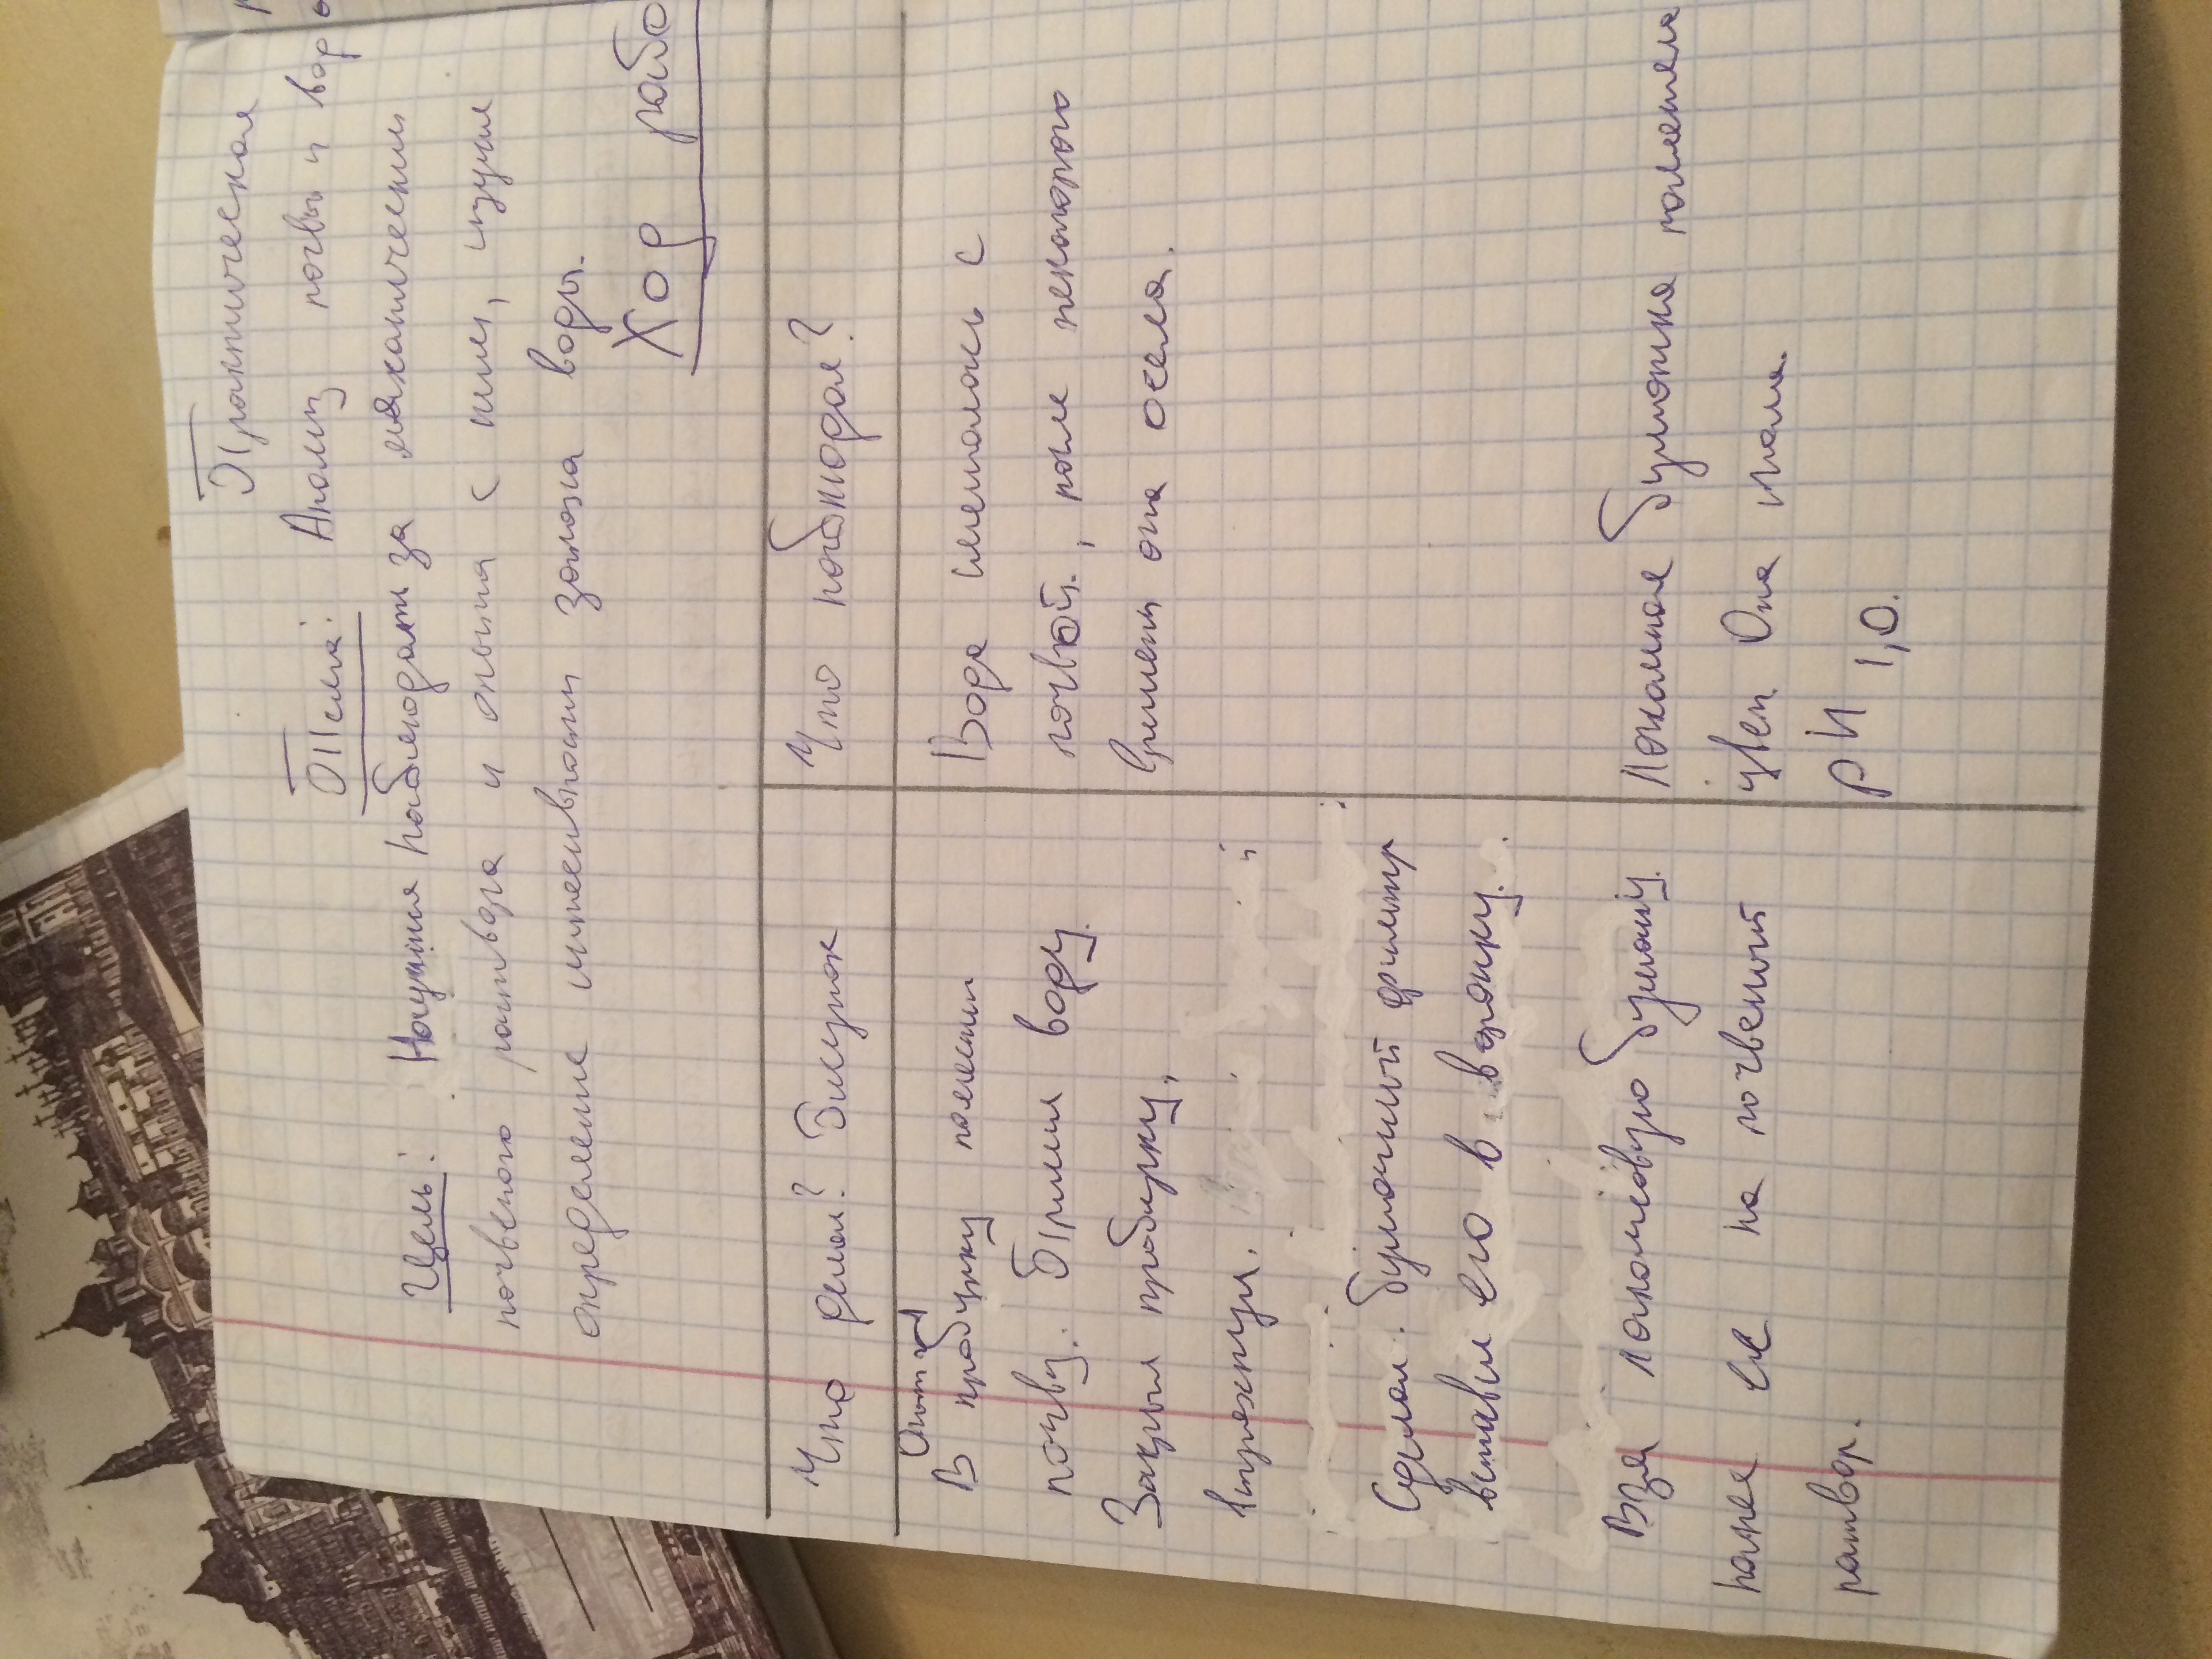 Практическая
Тема: Анализ почвы и вод
Цель: Научится наблюдать за механическим
почвеного раствора и опыта с ним, изучил
определение интесивности запаха воды.
Ход рабо
Что делал? Рисунок
Что наблюдал?
Опыт №1
В пробирку поместил
почву. Прилил воду.
Закрыл пробирку,
встряхнул.
Вода смешалась с
почвой, после некоторого
времени она осела.
Сделал бумажный фильтр
вставил его в воронку.
Взял лакмусовую бумагу.
нанёс её на почвеный
раствор.
Лакмусая бумажка поменяла
цвет Она стала
pH 1,0.